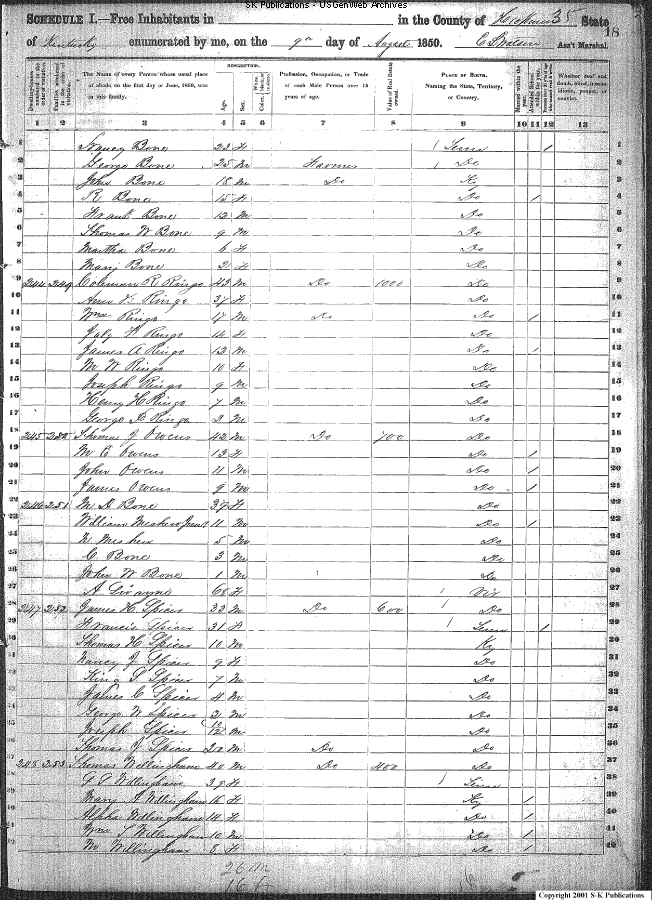 SK Publications - USGenWeb Archives
SCHEDULE I.—Free Inhabitants in in the County of Hickman State 35 18
of Kentucky enumerated by me, on the 9th day of August 1850. Ass't Marshal.
Dwelling-houses numbered in the order of visitation.
Families numbered in the order of visitation.
The Name of every Person whose usual place of abode on the first day of June, 1850, was in this family.
DESCRIPTION.
Age.
Sex.
White, black, or mulatto.
Color,
Profession, Occupation, or Trade of each Male Person over 15 years of age.
Value of Real Estate owned.
PLACE OF BIRTH.
Naming the State, Territory, or Country.
Married within the year.
Attended School within the year.
Whether deaf and dumb, blind, insane, idiotic, pauper, or convict.
1 2 3 4 5 6 7 8 9 10 11 12 13
1 Nancy Bone 23 F Tenn / 1
2 George Bone 25 M Farmer Do 2
3 John Bone 18 M Do Ky 3
4 R Bone 15 F Do / 4
5 Bone 12 M Do 5
6 Thomas W Bone 9 M Do 6
7 Martha Bone 6 F Do 7
8 Mary Bone 2 F Do 8
9 244 249 Coleman R Ringo 43 M Do 1000 Do 9
10 Ringo 37 F Do 10
11 Wm Ringo 17 M Do Do / 11
12 Ringo 14 F Do 12
13 James A Ringo 12 M Do / 13
14 M W Ringo 10 F Do 14
15 Joseph Ringo 9 M Do 15
16 Henry H Ringo 7 M Do 16
17 George Ringo 2 M Do 17
18 245 250 Thomas J Owens 42 M Do 700 Do 18
19 M E Owens 13 F Do / 19
20 John Owens 11 M Do / 20
21 James Owens 9 M Do / 21
22 246 251 M A Bone 39 F Do 22
23 William 11 M Do / 23
24 5 M Do 24
25 C Bone 3 M Do 25
26 John W Bone 1 M Do 26
27 A 68 F Vir 27
28 247 252 James H Spicer 33 M Do 600 Do 28
29 Francis Spicer 31 F Tenn / 29
30 Thomas H Spicer 10 M Ky 30
31 Nancy J Spicer 9 F Do 31
32 King S Spicer 7 M Do 32
33 James C Spicer 4 M Do 33
34 George W Spicer 3 M Do 34
35 Joseph Spicer M Do 35
36 Thomas J Spicer 22 M Do Do 36
37 248 253 Thomas Willingham 40 M Do 400 Do 37
38 Willingham 39 F Tenn 38
39 Mary A Willingham 16 F Ky / 39
40 Alpha Willingham 14 F Do / 40
41 Wm T Willingham 10 M Do / 41
42 M Willingham 8 F Do / 42
26 m
16 f
Copyright 2001 S-K Publications